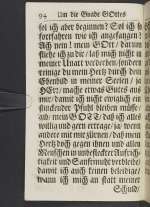 94 Um die Gnade GOttes
sol ich aber beginnen? Sol ich so
fortfahren wie ich angefangen?
Ach nein! mein GOtt/ darum
fliehe ich zu dir/ laß mich nicht in
meiner Unart verderben/ sondern
reinige du mein Hertz durch dein
Ebenbild in meiner Seelen/ ja
HErr/ mache etwas Gutes aus
mir/ damit ich nicht ewiglich ein
stinckender Pfuhl bleiben müsse/
auch/ mein GOTT/ daß ich alles
willig und gern ertrage/ so wenn
andere mit mir zürnen/ daß mein
Hertz doch gegen ihnen und allen
Menschen in unbefleckter Aufrich-
tigkeit und Sanftmuth verbleibe/
damit ich auch keinen beleidige/
wann ich mich an statt meiner
Schuld/